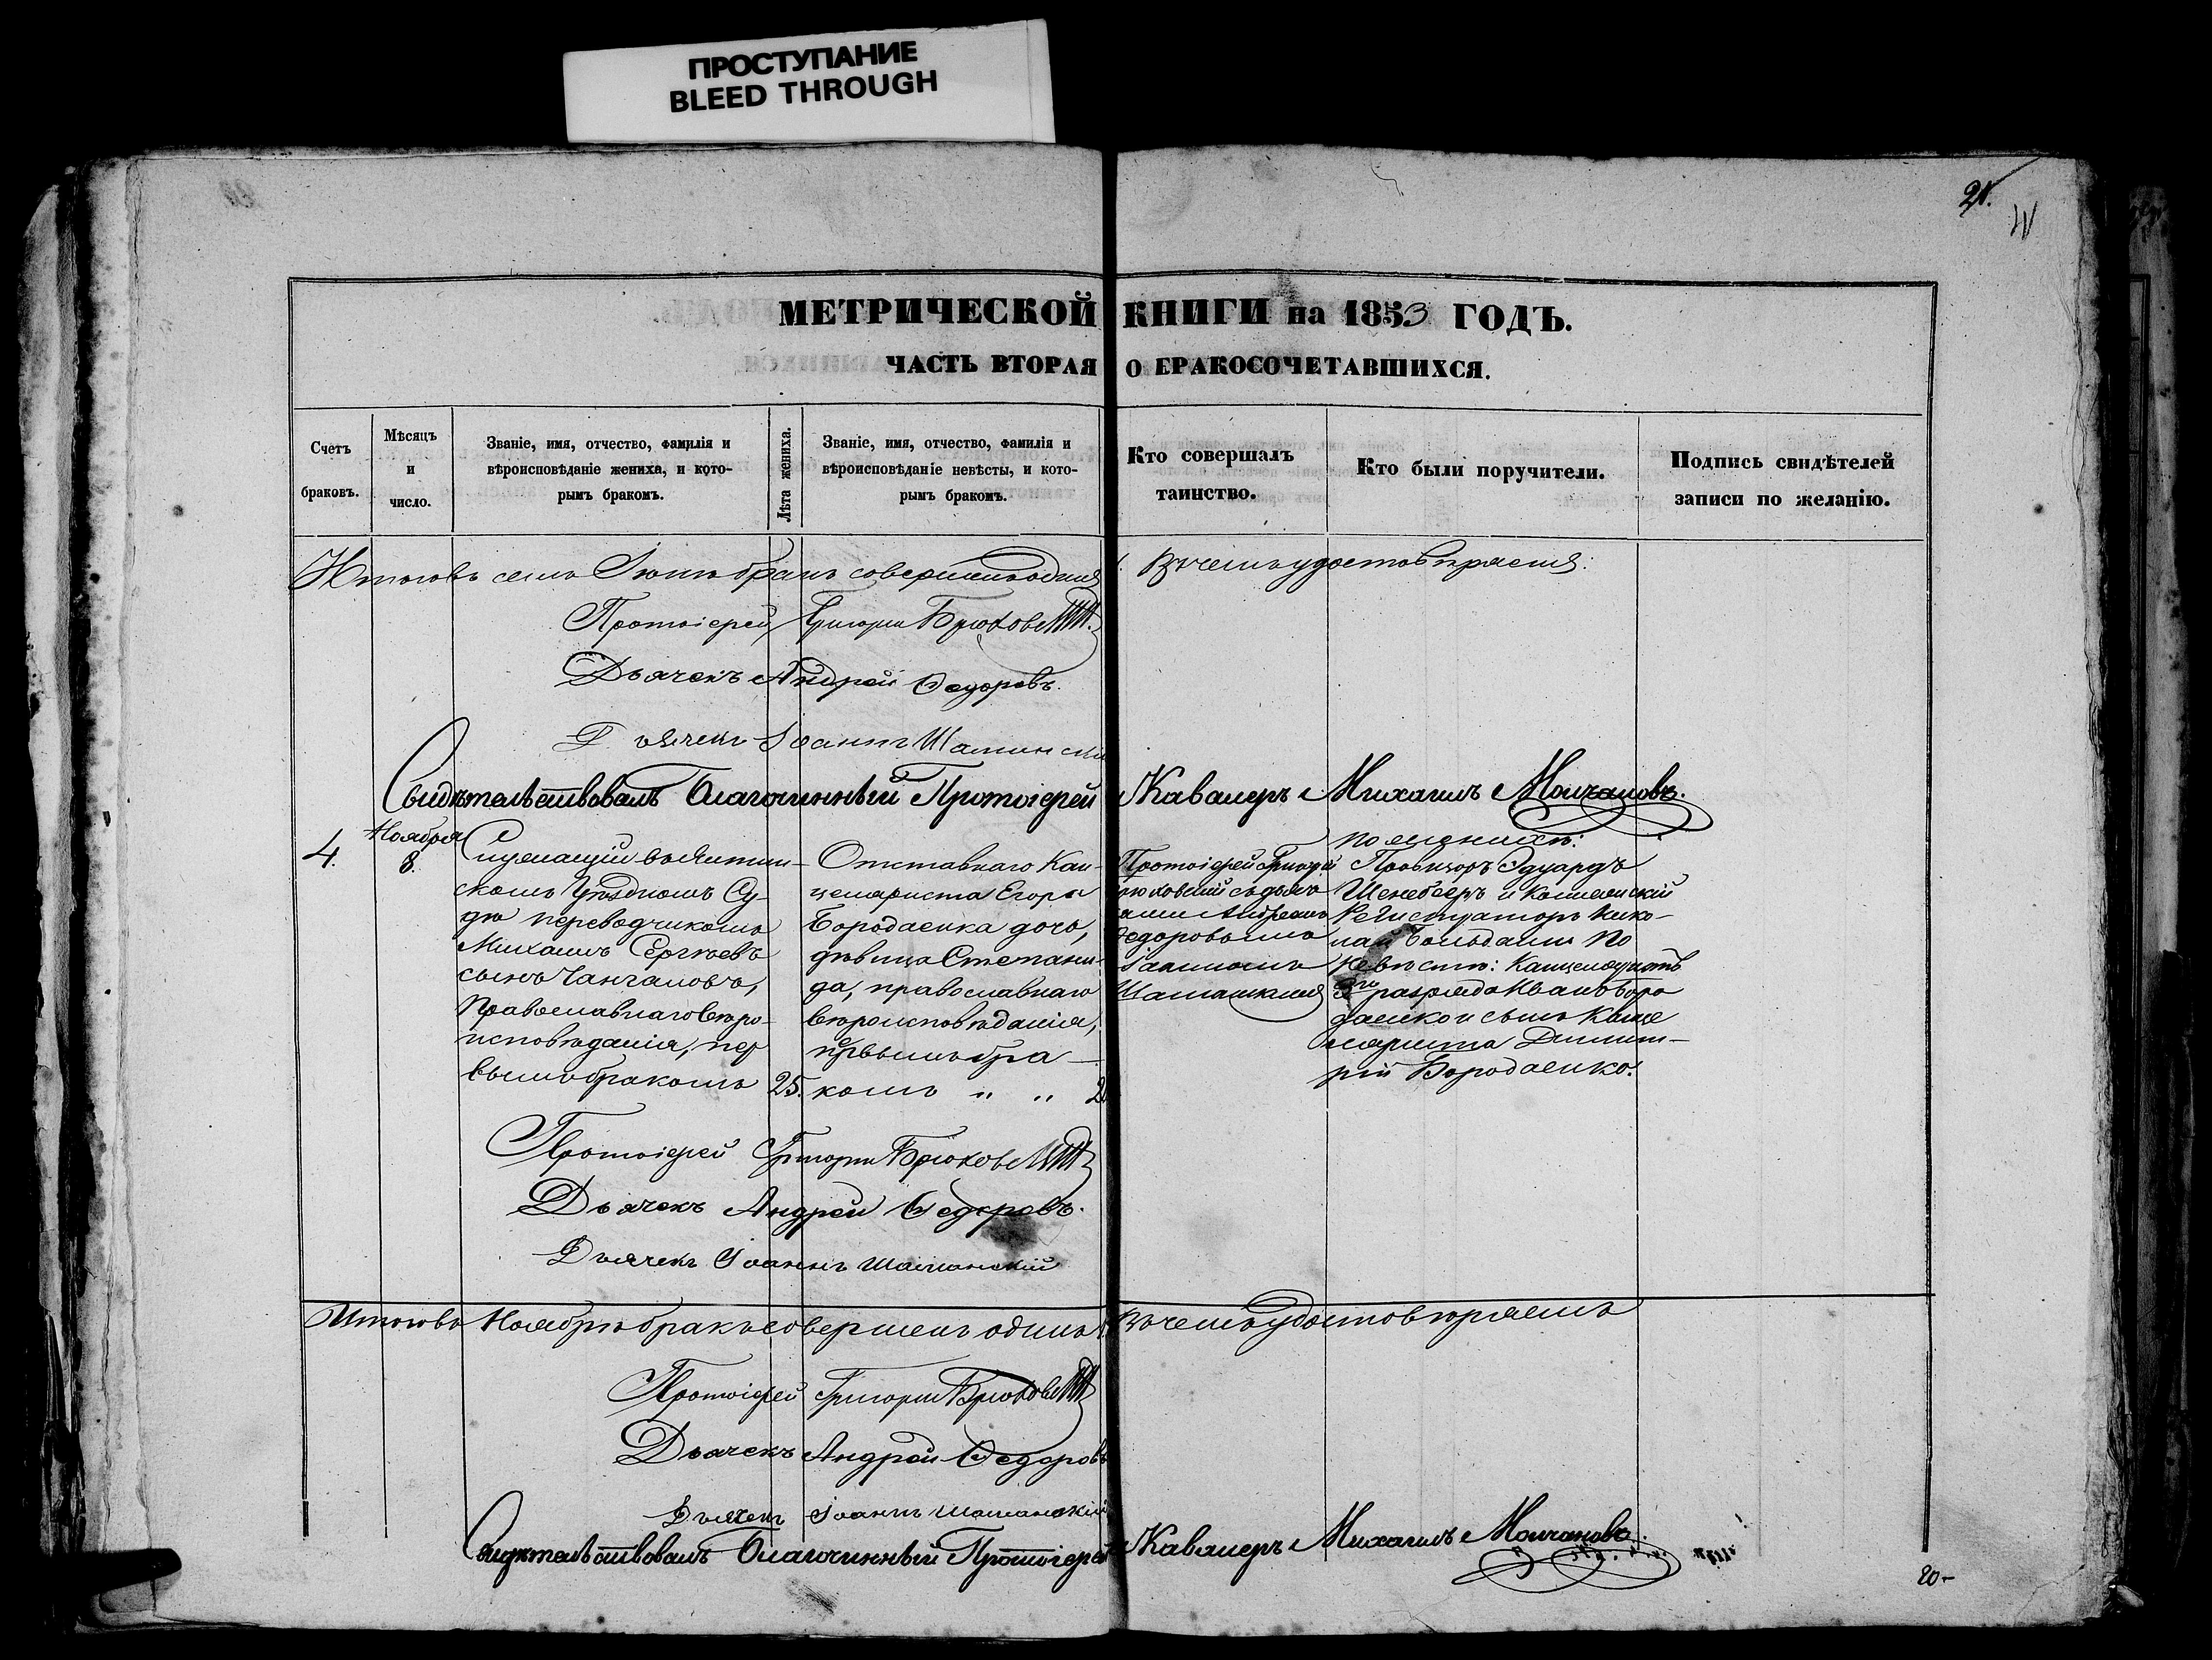 ПРОСТУПАНИЕ
BLEED THROUGH
21.
МЕТРИЧЕСКОЙ КНИГИ на 1853 ГОДЪ.
ЧАСТЬ ВТОРАЯ О БРАКОСОЧЕТАВШИХСЯ.
Счетъ
браковъ.
Мѣсяцъ
и
число.
Званіе, имя, отчество, фамилія и
вѣроисповѣданіе жениха, и кото-
рымъ бракомъ.
Лѣта жениха.
Званіе, имя, отчество, фамилія и
вѣроисповѣданіе невѣсты, и кото-
рымъ бракомъ.
Кто совершалъ
таинство.
Кто были поручители.
Подпись свидѣтелей
записи по желанію.
Итого въ семъ бракъ совершенъ одинъ Въ чемъ удостовѣряемъ:
Протоіерей Григорій
Дьячекъ Андрей Ѳедоровъ.
Дьячекъ Іоаннъ
Свидѣтельствовалъ Благочинный Протоіерей Кавалеръ Михаилъ Молчановъ.
4.
Ноября
8.
Служащій въ
скомъ Уѣздномъ Су-
дѣ переводчикомъ
Михаилъ Сергѣевъ
сынъ
Православнаго вѣро-
исповѣданія, пер
вымъ бракомъ
25.
Отставнаго Кан-
целяриста Егора
Бородаенка дочь,
дѣвица Степани-
да, православнаго
вѣроисповѣданія,
первымъ бра-
комъ „ „
Протоіерей Григорій
съ дьяч
Андреемъ
Ѳедоровымъ
Іоанномъ
По женихѣ:
Провизоръ Эдуардъ
и Коллежскій
Регистраторъ Нико-
лай По
невѣстѣ: Канцеляристъ
разряда Иванъ Боро
даенко и сынъ Канце
ляриста Димит-
рій Бородаенко.
Протоіерей Григорій
Дьячекъ Андрей Ѳедоровъ.
Дьячекъ Іоаннъ
Итого въ Ноябрѣ бракъ совершенъ одинъ Въ чемъ удостовѣряемъ
Протоіерей Григорій
Дьячекъ Андрей Ѳедоровъ
Дьячекъ Іоаннъ
Свидѣтельствовалъ Благочинный Протоіерей Кавалеръ Михаилъ Молчановъ.
20-